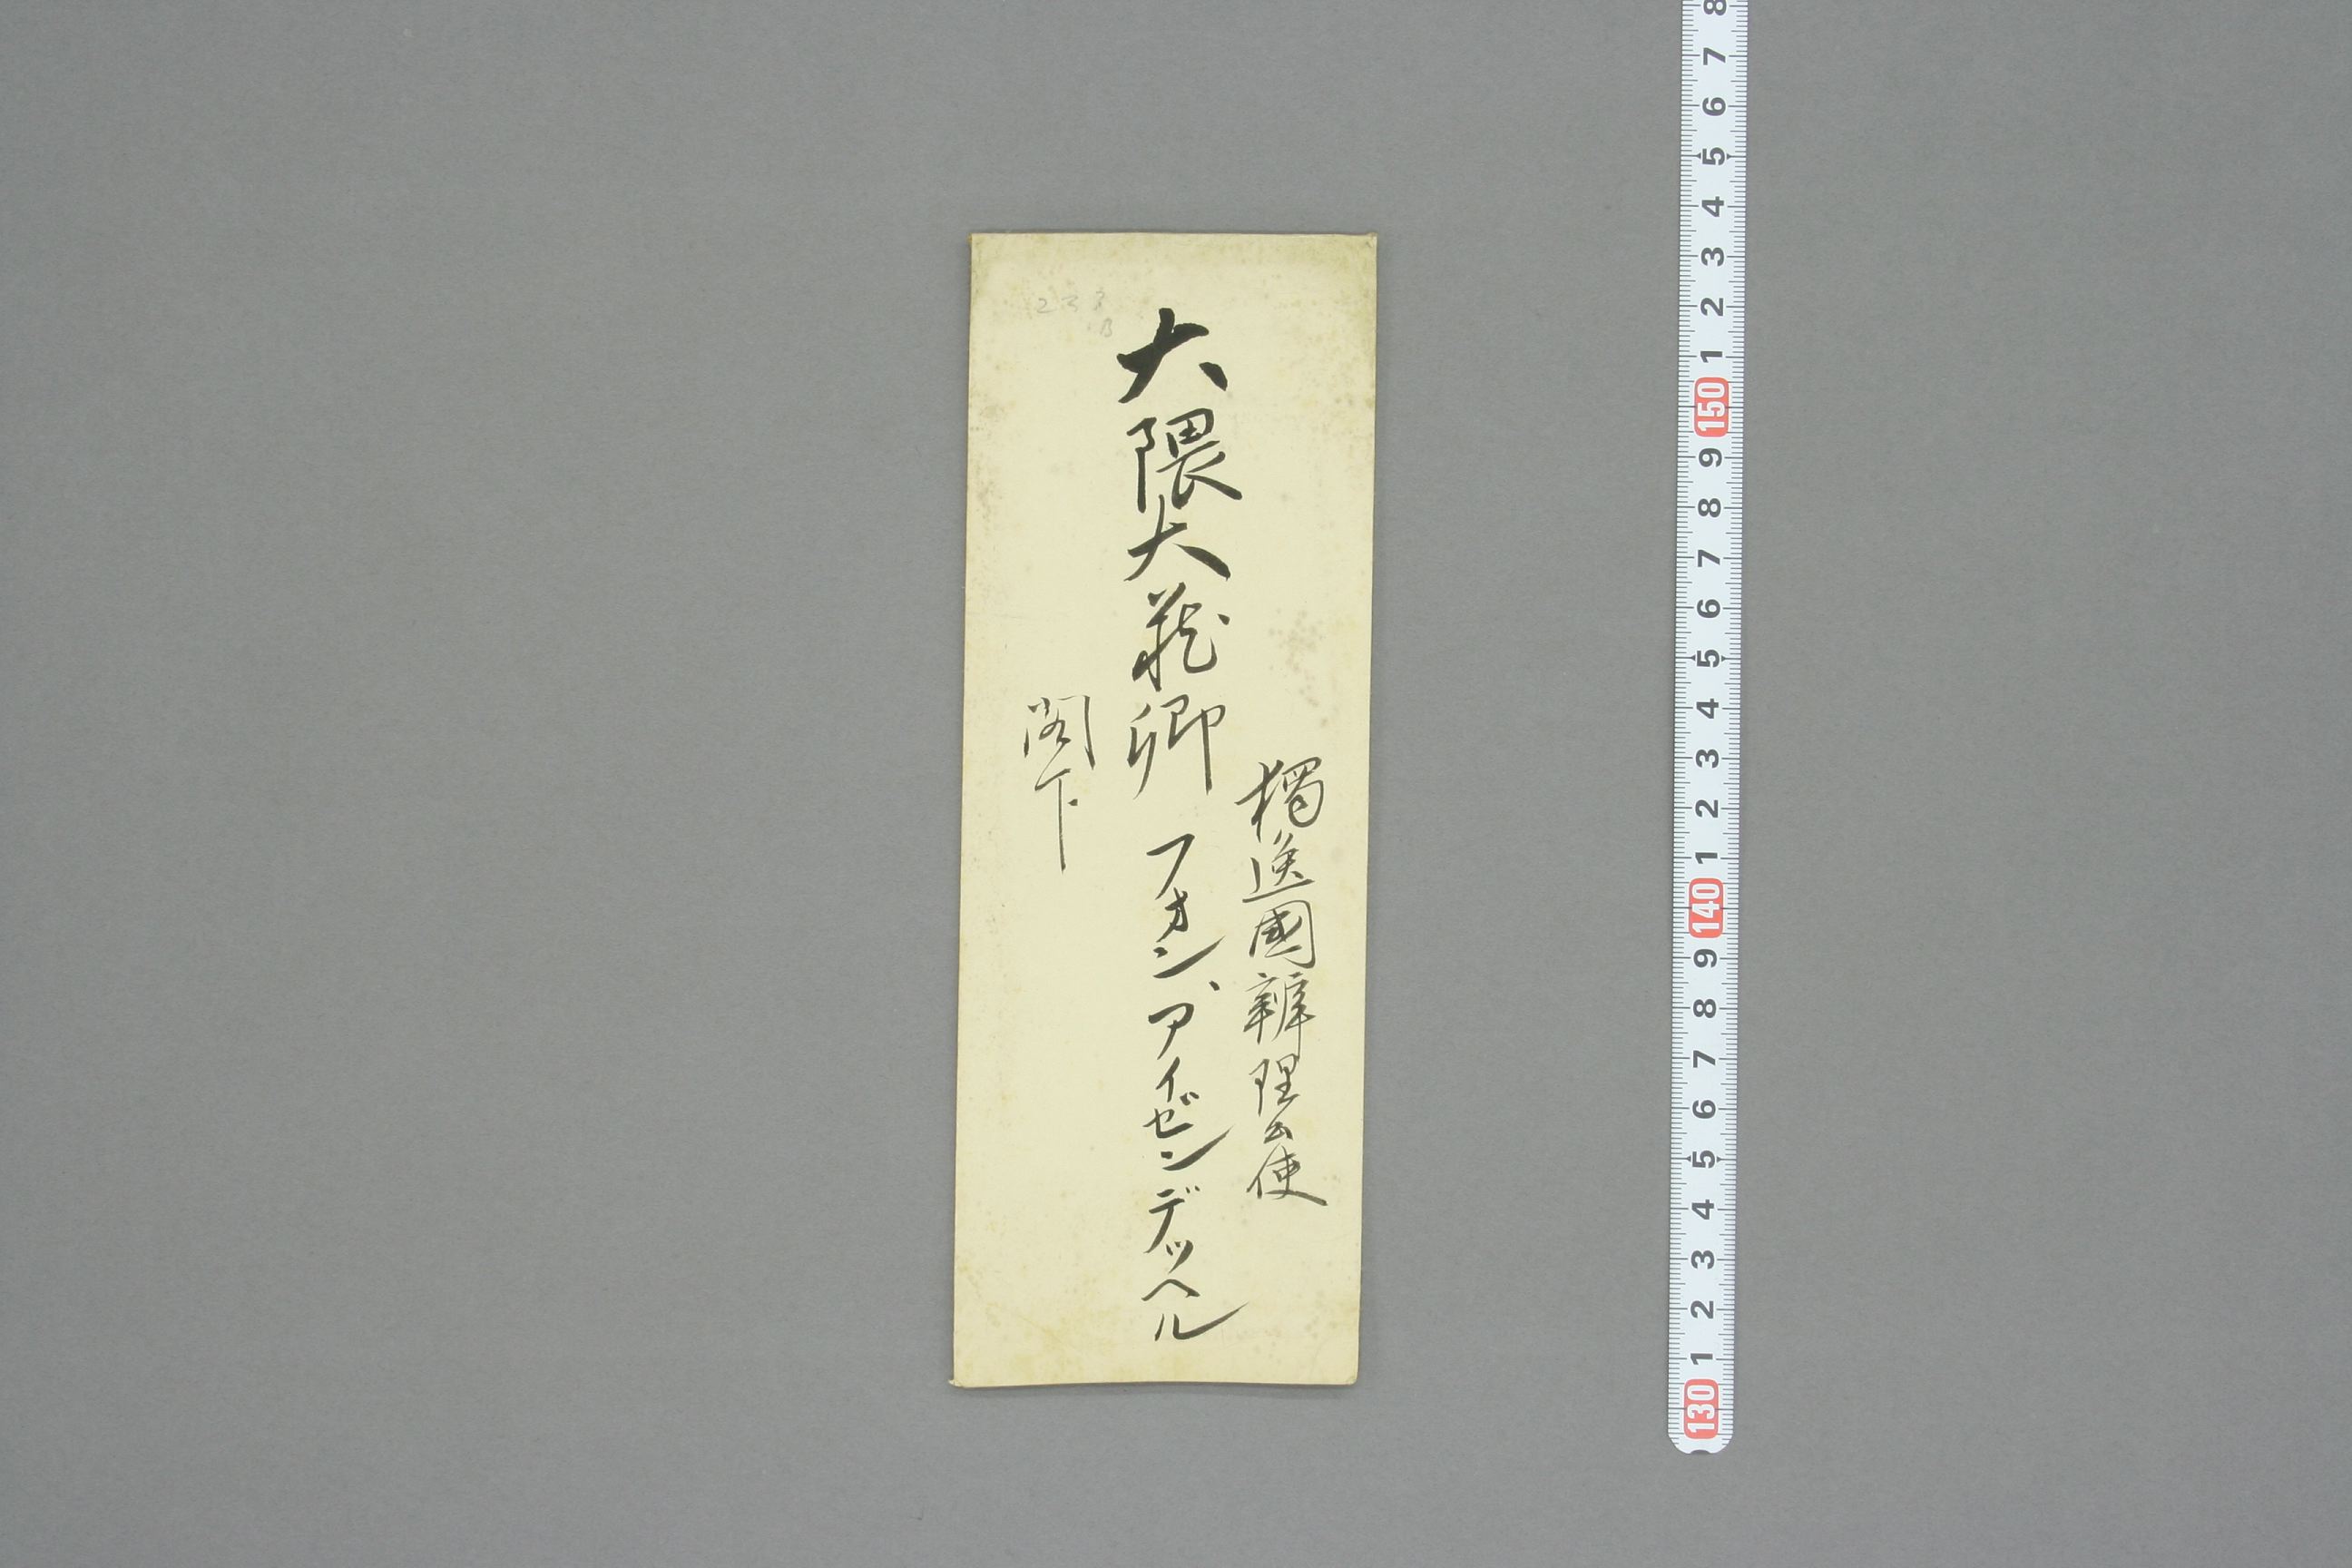 獨逸國辨理公使
大隈大藏卿
フオン、アイゼンデッヘル
閣下
233
B
8
7
6
5
4
3
2
1
150
9
8
7
6
5
4
3
2
1
140
9
8
7
6
5
4
3
2
1
130